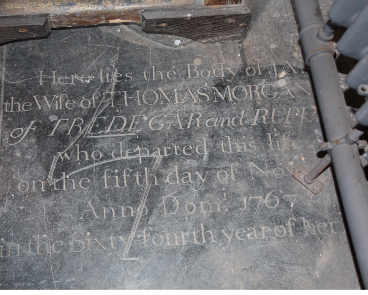 Here lies the Body of JAN
the Wife of THOMAS MORGAN
of TREDEGAR and RUPE
who departed this life
on the fifth day of No
Anno Dom: 1767
in the Sixty fourth year of her